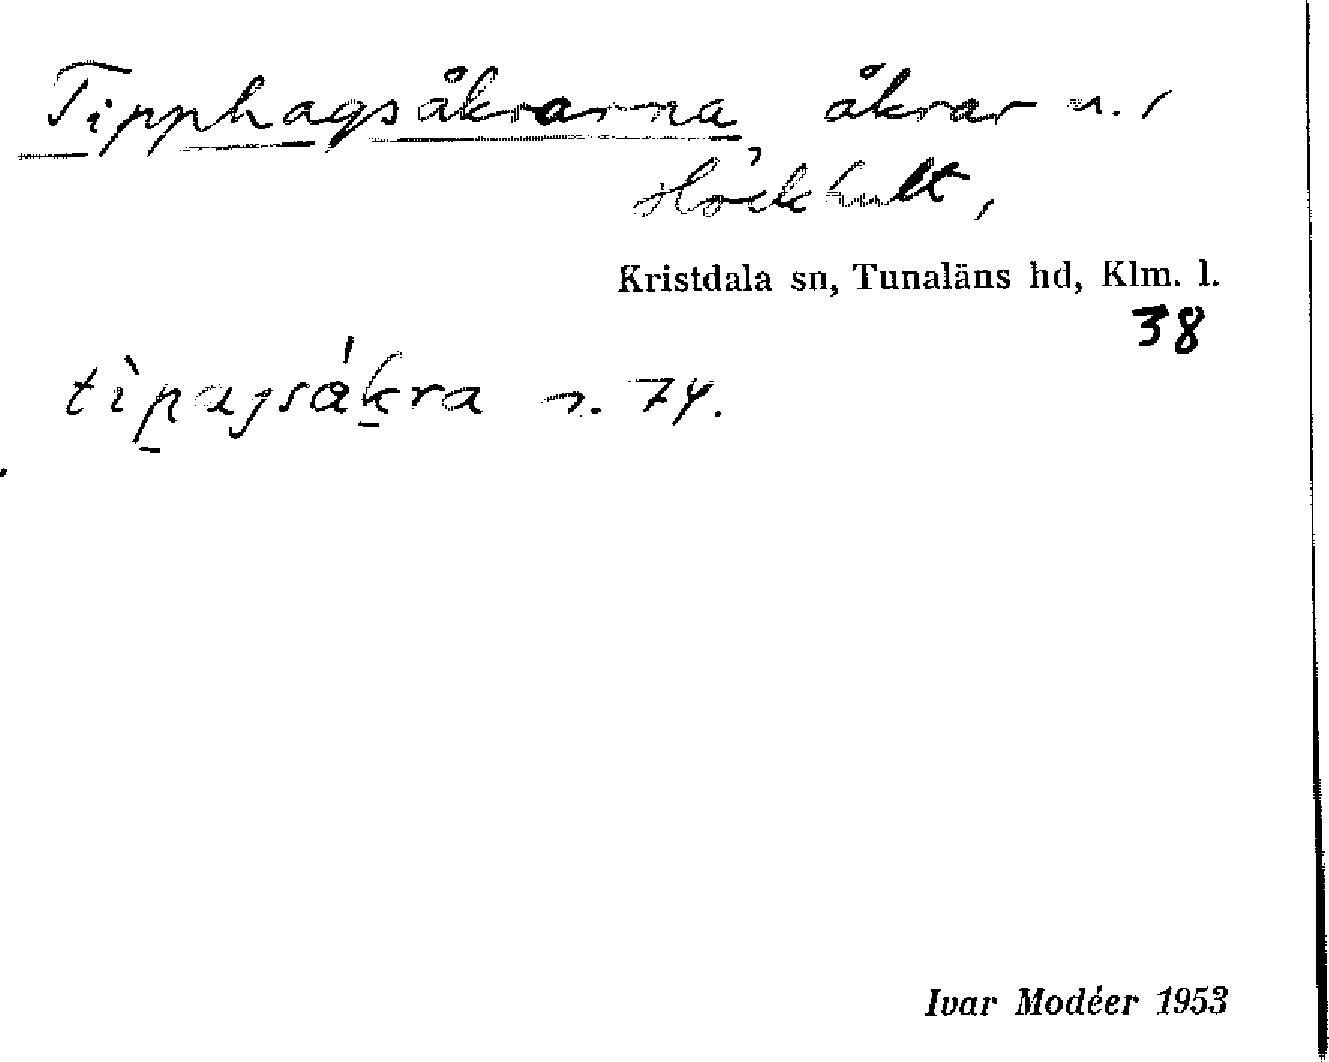 Tipphagsåkrarna åkrar u. /
Höckhult,
Kristdala sn, Tunaläns hd, Klm. l.
38
tìpagsákra n. 74.
Ivar Modéer 1953